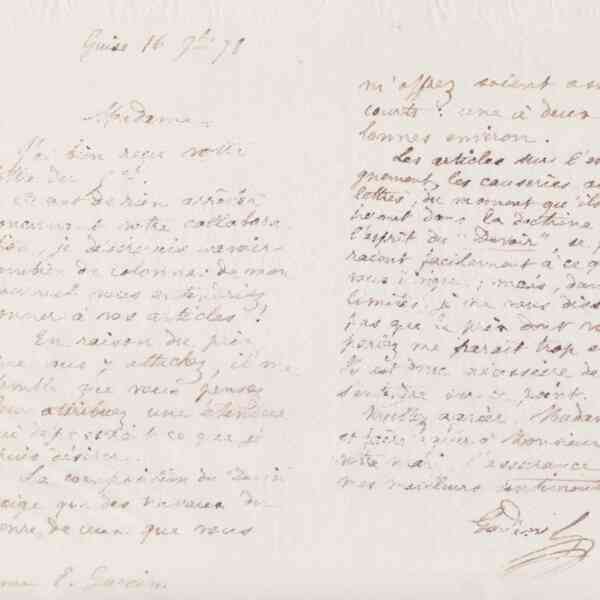 Guise 16 9bre 78
Madame,
J'ai bien reçu votre
lettre du
avant de rien arrêter
concernant votre collabora
tion, je désirerais savoir
combien de colonnes de mon
journal vous entendriez
donner à vos articles !
En raison du prix
que vous y attachez, il me
semble que vous pensez
leur attribuer une étendue
qui dépasserait ce que je
puis désirer.
La composition du Devoir
exige que des travaux du
genre de ceux que vous
E. Garcin
m'offrez soient assez
courts : une à deux
lonnes environ.
Les articles sur l'en
gnement, les causeries
lettres, du moment qu'ils
dans la doctrine
l'esprit du "Devoir", se
ront facilement à ce
; mais, dans
limites, je ne vous diss
pas que le prix dont vous
parlez me paraît trop
Il est donc nécessaire de
s'entendre sur ce point.
Veuillez agréer, Madame
et faire agréer à Monsieur
votre mari l'assurance
mes meilleurs sentiments
Godin